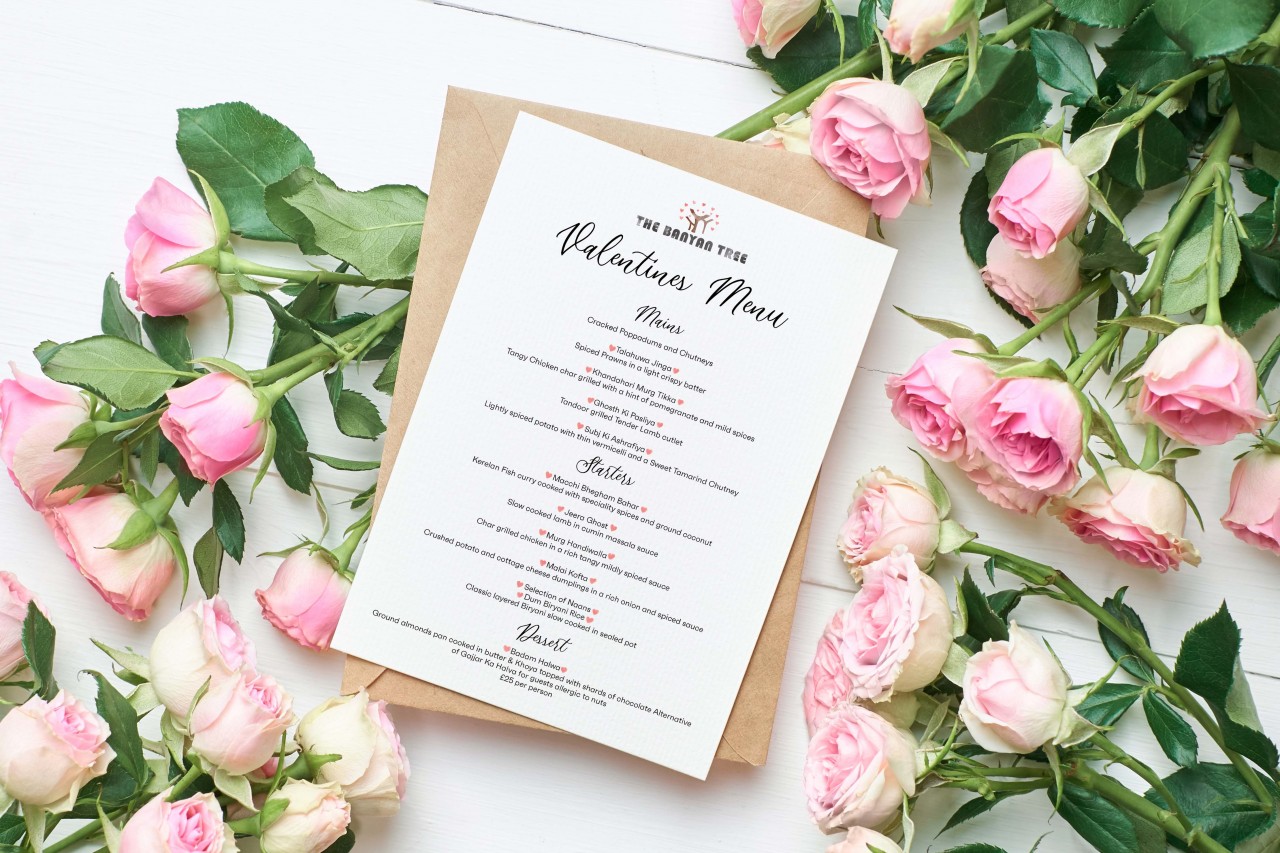 THE BANYAN TREE
Valentines Menu
Mains
Cracked Poppadums and Chutneys
Talahuwa Jinga
Spiced Prawns in a light crispy batter
Khandahari Murg Tikka
Tangy Chicken char grilled with a hint of pomegranate and mild spices
Ghosth Ki Pasliya
Tandoor grilled Tender Lamb cutlet
Subj Ki Ashrafiya
Lightly spiced potato with thin vermicelli and a Sweet Tamarind Chutney
Starters
Macchi Bhegham Bahar
Kerelan Fish curry cooked with speciality spices and ground coconut
Jeera Ghost
Slow cooked lamb in cumin massala sauce
Murg Handiwalla
Char grilled chicken in a rich tangy mildly spiced sauce
Malai Kofta
Crushed potato and cottage cheese dumplings in a rich onion and spiced sauce
Selection of Naans
Dum Biryani Rice
Classic layered Biryani slow cooked in sealed pot
Dessert
Badam Halwa
Ground almonds pan cooked in butter & Khoya topped with shards of chocolate Alternative
of Gajjar Ka Halva for guests allergic to nuts
£25 per person